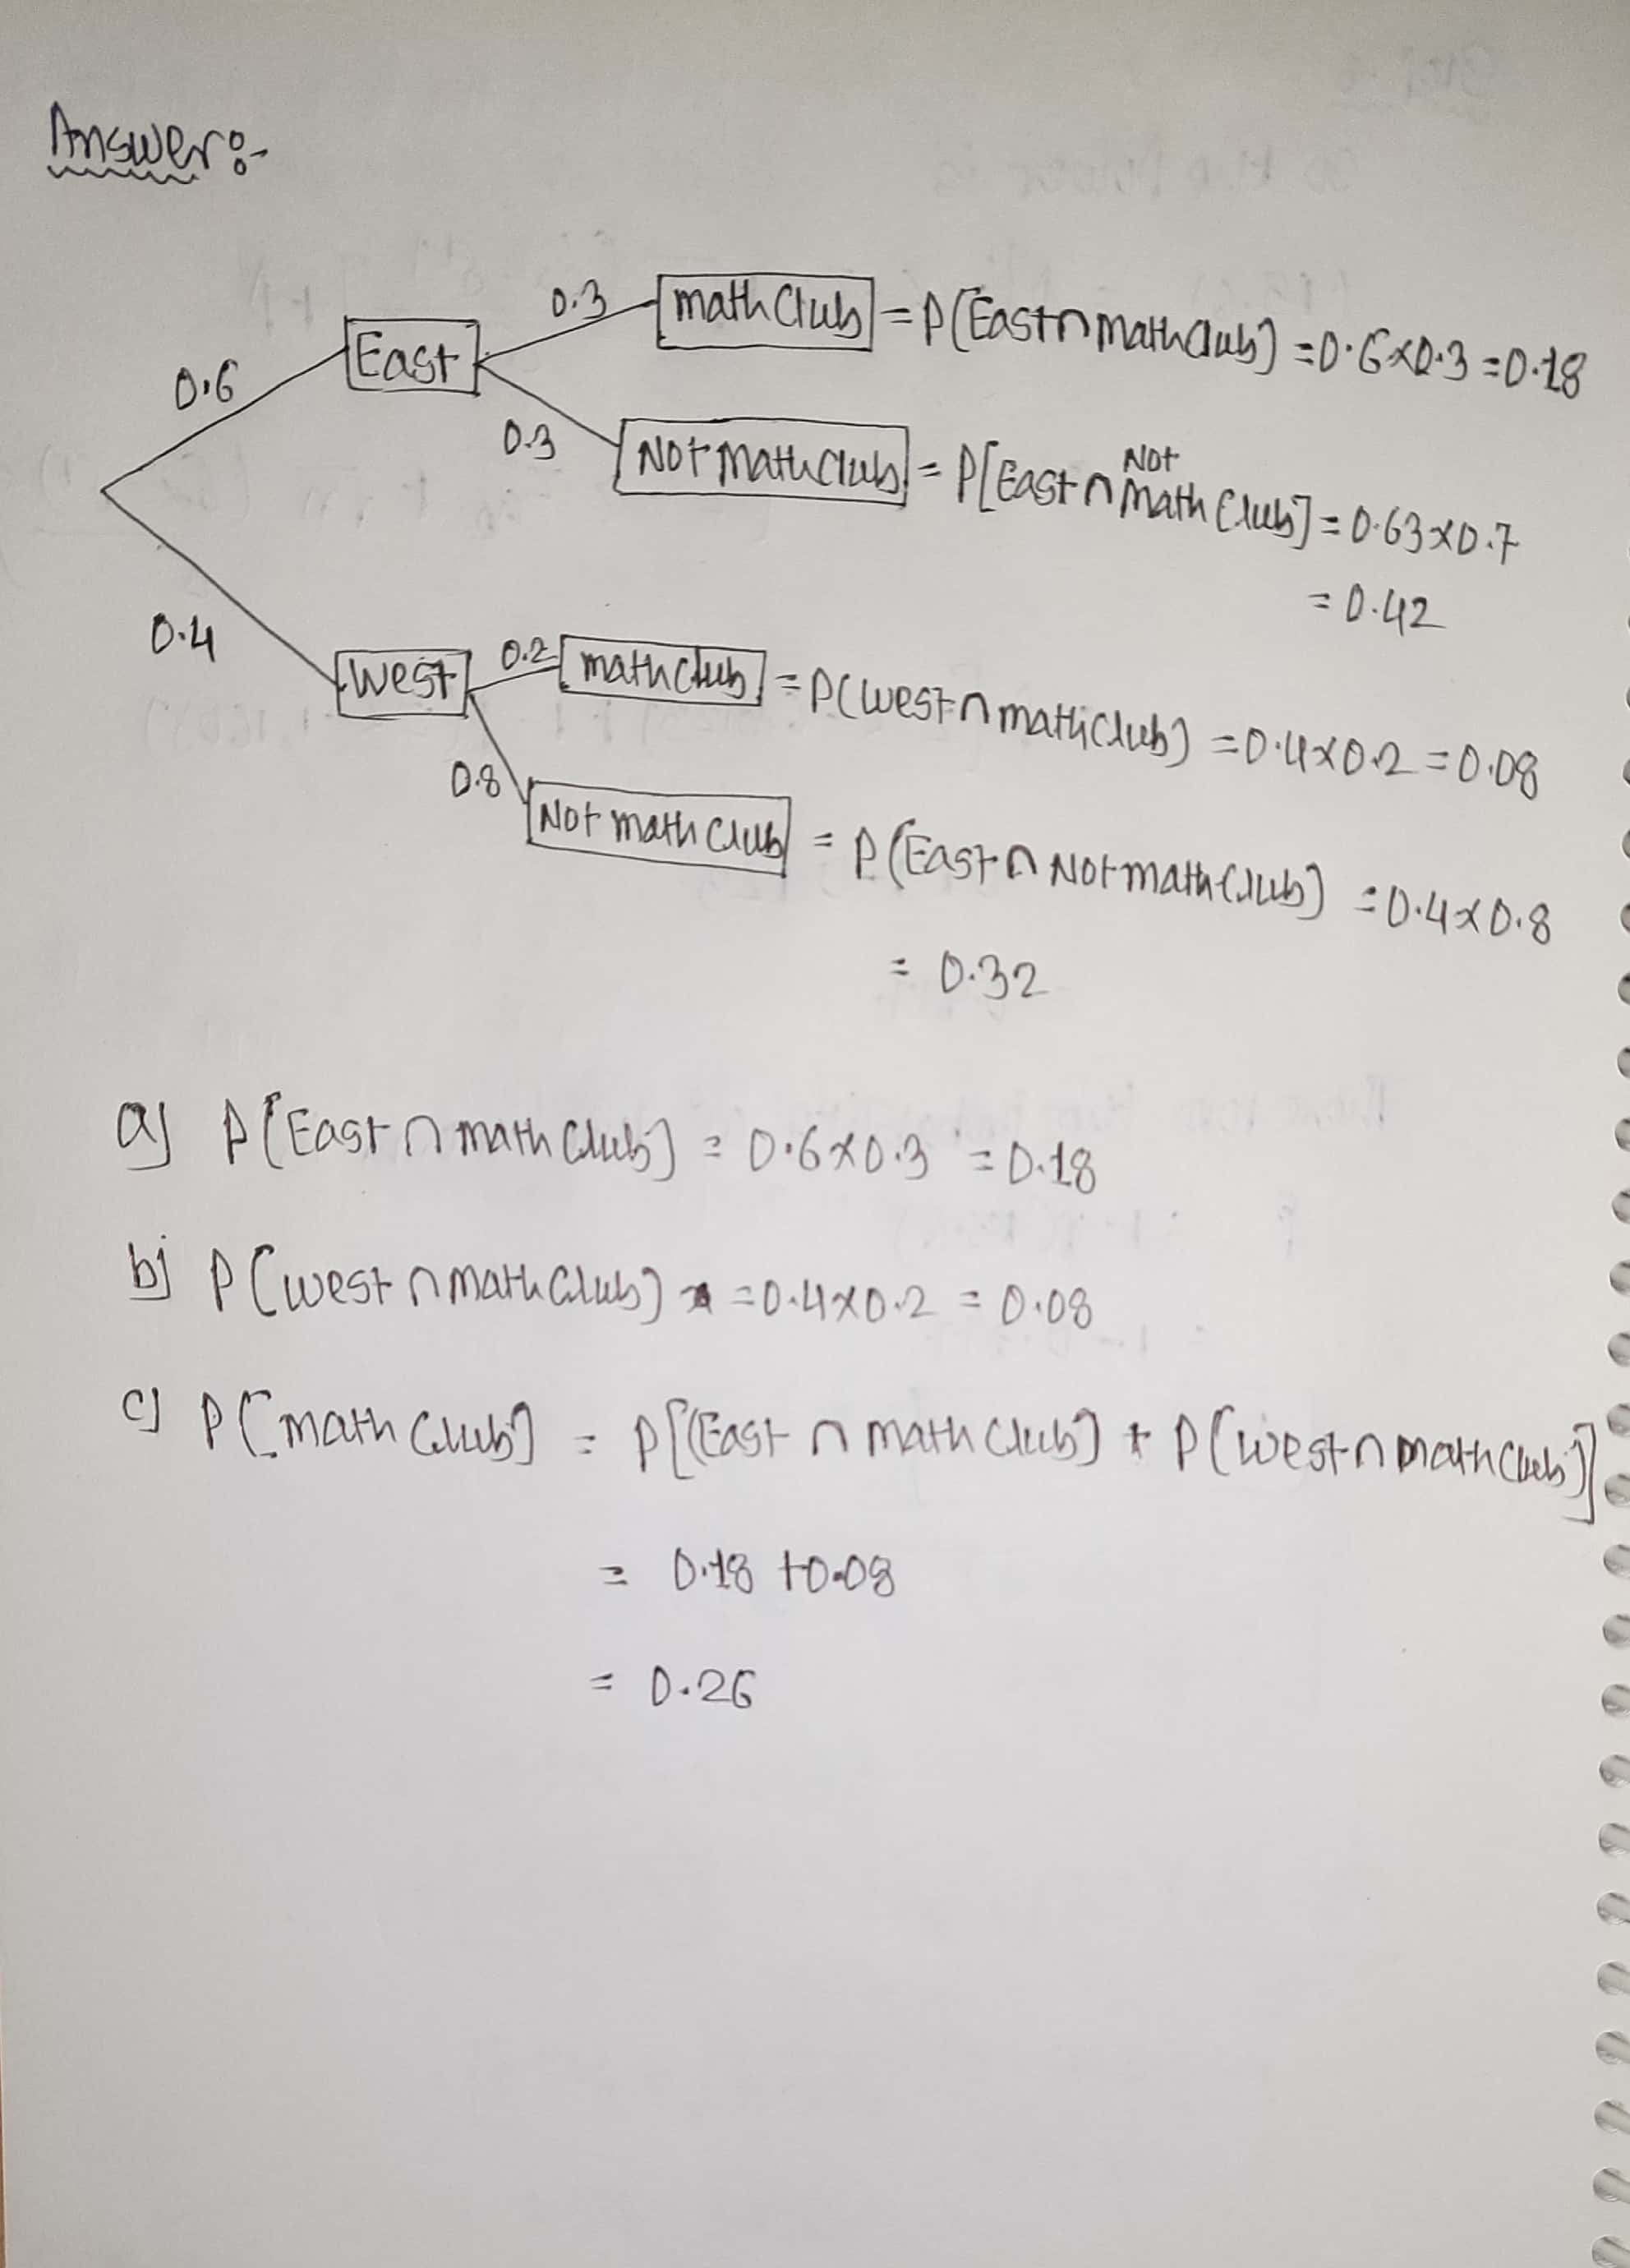 Answer:-
0.6
East
0.3
math Club = P(East ∩ math Club) = 0.6 x 0.3 = 0.18
0.3
Not math Club = P[East ∩ Not math Club] = 0.63 x 0.7
= 0.42
0.4
West
0.2
math club = P(West ∩ math club) = 0.4 x 0.2 = 0.08
0.8
Not math club = P(East ∩ Not math Club) = 0.4 x 0.8
= 0.32
a) P(East ∩ math Club) = 0.6 x 0.3 = 0.18
b) P(west ∩ math Club) = 0.4 x 0.2 = 0.08
c) P(math Club) = P[(East ∩ math club) + P(west ∩ math club)]
= 0.18 + 0.08
= 0.26